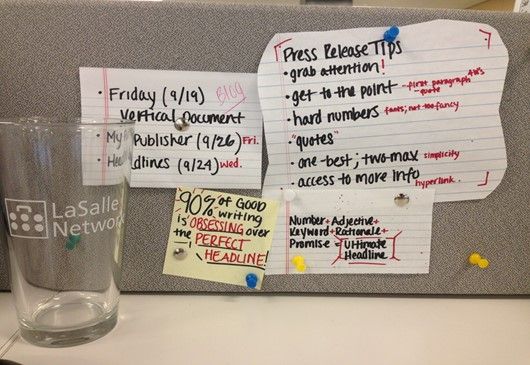 • Friday (9/19) BLOG
Vertical Document
• My Publisher (9/26) Fri.
• Headlines (9/24) Wed.
LaSalle
Network
90% of GOOD
writing
is OBSESSING over
the PERFECT
HEADLINE!
Press Release Tips
• grab attention!
• get to the point - first paragraph 4W's
- quote
• hard numbers fonts; not too fancy
• "quotes"
• one-best; two-max simplicity
• access to more info hyperlink.
Number + Adjective +
Keyword + Rationale +
Promise = Ultimate
Headline